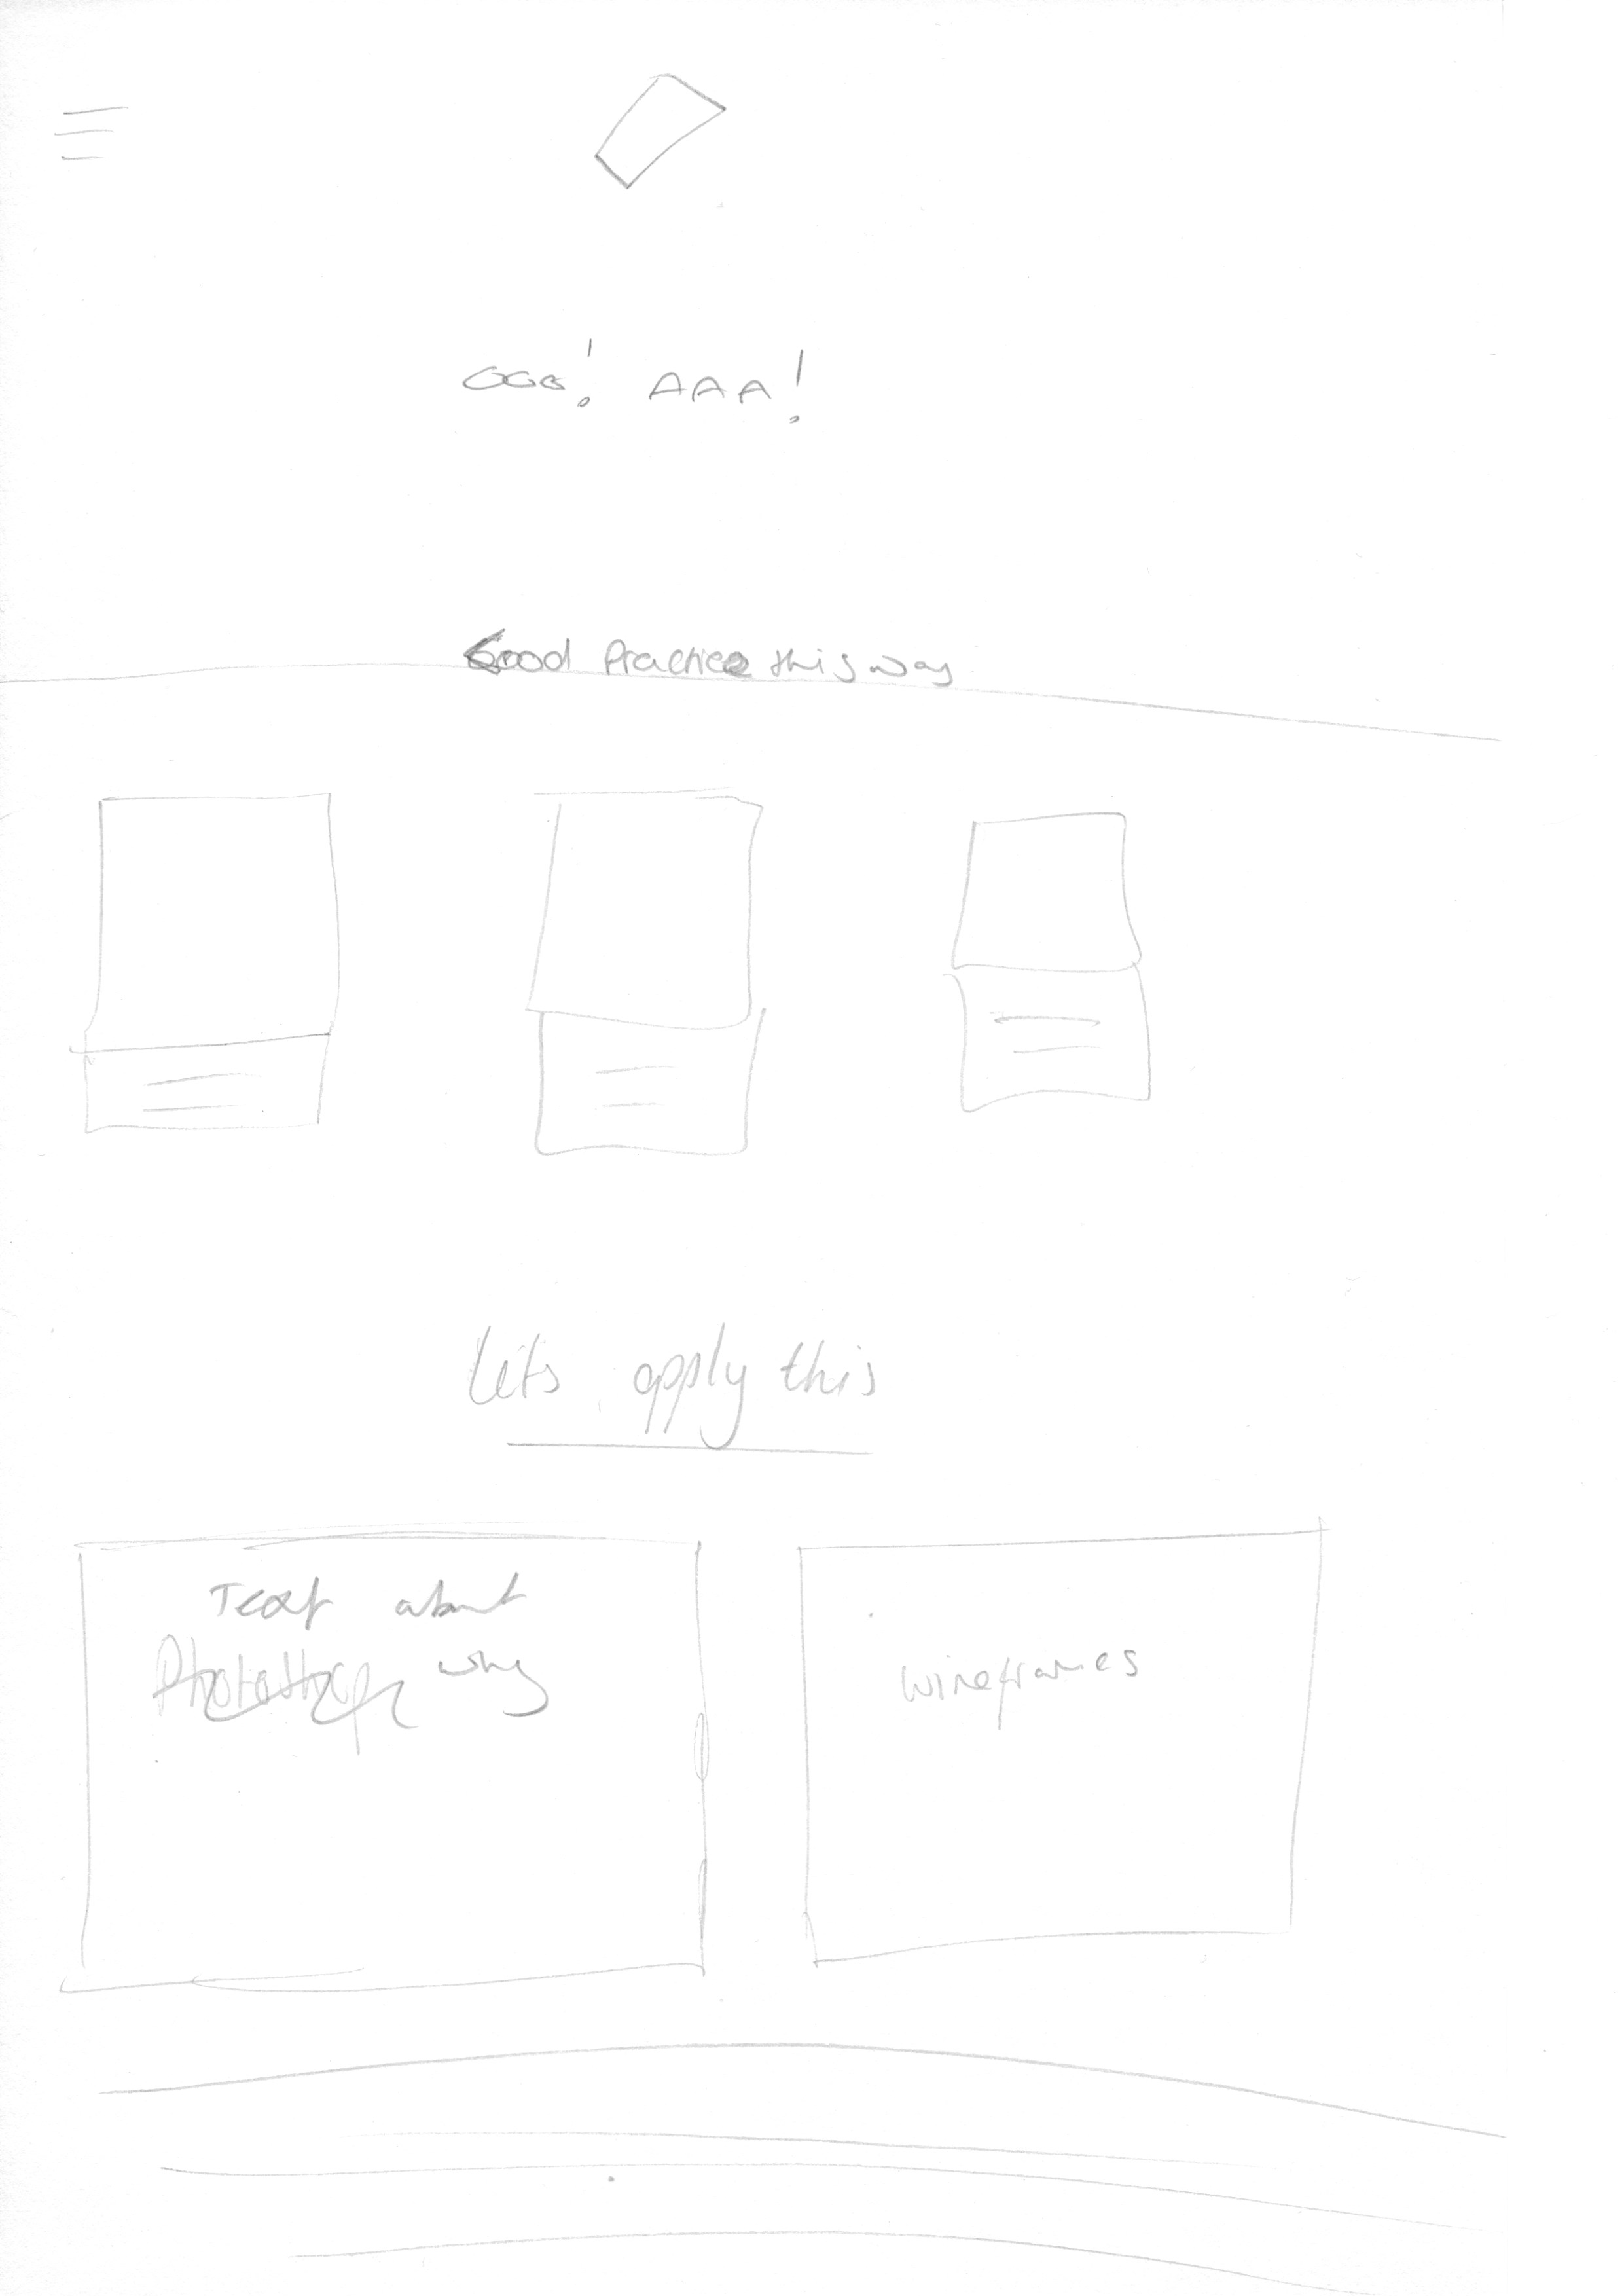 OOO! AAA!
Good Practice this way
Lets apply this
Text about
why
wireframes